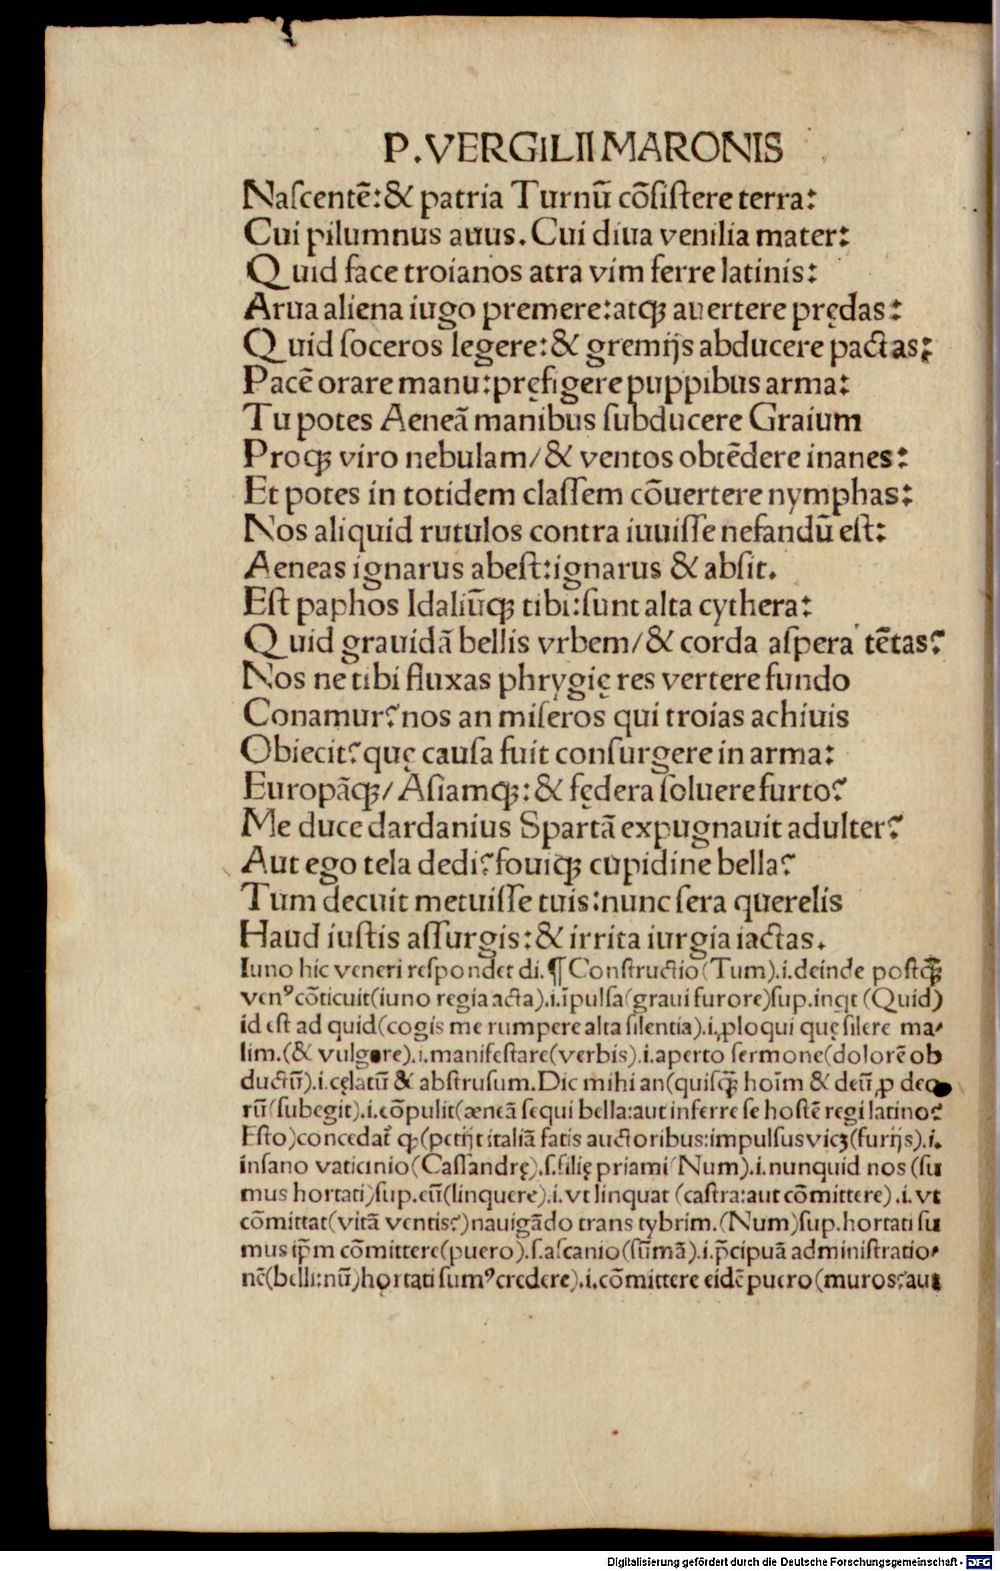 P. VERGILII MARONIS
Naſcentē: & patria Turnū cōſiſtere terra:
Cui pilumnus auus. Cui diua venilia mater:
Quid face troianos atra vim ferre latinis:
Arua aliena iugo premere: atqꝫ auertere prędas:
Quid ſoceros legere: & gremijs abducere pactas;
Pacē orare manu: pręfigere puppibus arma:
Tu potes Aeneā manibus ſubducere Graium
Proqꝫ viro nebulam/ & ventos obtēdere inanes:
Et potes in totidem claſſem cōuertere nymphas:
Nos aliquid rutulos contra iuuiſſe nefandū eſt:
Aeneas ignarus abeſt: ignarus & abſit.
Eſt paphos Idaliūqꝫ tibi: ſunt alta cythera:
Quid grauidā bellis vrbem/ & corda aſpera tētas?
Nos ne tibi fluxas phrygię res vertere fundo
Conamur? nos an miſeros qui troias achiuis
Obiecit? quę cauſa fuit conſurgere in arma:
Europāqꝫ/ Aſiamqꝫ: & fędera ſoluere furto?
Me duce dardanius Spartā expugnauit adulter?
Aut ego tela dedi? fouiqꝫ cupidine bella?
Tum decuit metuiſſe tuis: nunc ſera querelis
Haud iuſtis aſſurgis: & irrita iurgia iactas.
Iuno hic veneri reſpondet di. ¶ Conſtructio (Tum) .i. deinde poſtqꝫ̄
venꝰ cōticuit (iuno regia acta) .i. īpulſa (graui furore) ſup. inqt (Quid)
id eſt ad quid (cogis me rumpere alta ſilentia) .i. ꝓloqui quę ſilere ma-
lim. (& vulgare) .i. manifeſtare (verbis) .i. aperto ſermone (dolorē ob
ductū) .i. cęlatū & abſtruſum. Dic mihi an (quiſqꝫ̄ hoīm & deū ꝓ deo
rū (ſubegit) .i. cōpulit (æneā ſequi bella: aut inferre ſe hoſtē regi latino?
Eſto) concedat᷑ qꝫ (petijt italiā fatis auctoribus: impulſus vicꝫ (furijs) .i.
inſano vaticinio (Caſſandrę) .ſ. filię priami (Num) .i. nunquid nos (ſu
mus hortati) ſup. eū (linquere) .i. vt linquat (caſtra: aut cōmittere) .i. vt
cōmittat (vitā ventis?) nauigādo trans tybrim. (Num) ſup. hortati ſu
mus ip̄m cōmittere (puero) .ſ. aſcanio (ſūmā) .i. p̄cipuā adminiſtratio-
nē (belli: nū) hortati ſumꝰ credere) .i. cōmittere eidē puero (muros? aut
Digitalisierung gefördert durch die Deutsche Forschungsgemeinschaft - DFG